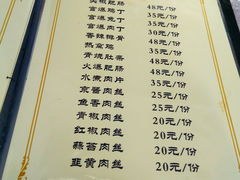 椒肥肠 48元/份
宫爆鸡丁 35元/份
宫爆兔丁 35元/份
宫爆肉丁 30元/份
香辣排骨 48元/份
热窝鸡 35元/份
青烧肚条 48元/份
火爆肥肠 48元/份
水煮肉片 35元/份
京酱肉丝 25元/份
鱼香肉丝 25元/份
青椒肉丝 20元/份
红椒肉丝 20元/份
蒜苔肉丝 20元/份
韭黄肉丝 20元/份